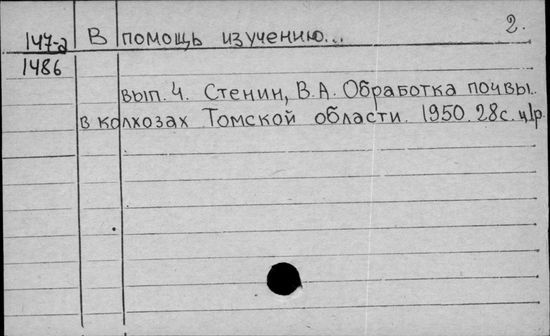 2.
147-д В помощь изучению...
1486
вып. 4. Стенин, В.А. Обработка почвы
в колхозах Томской области. 1950. 28с. ц1р.